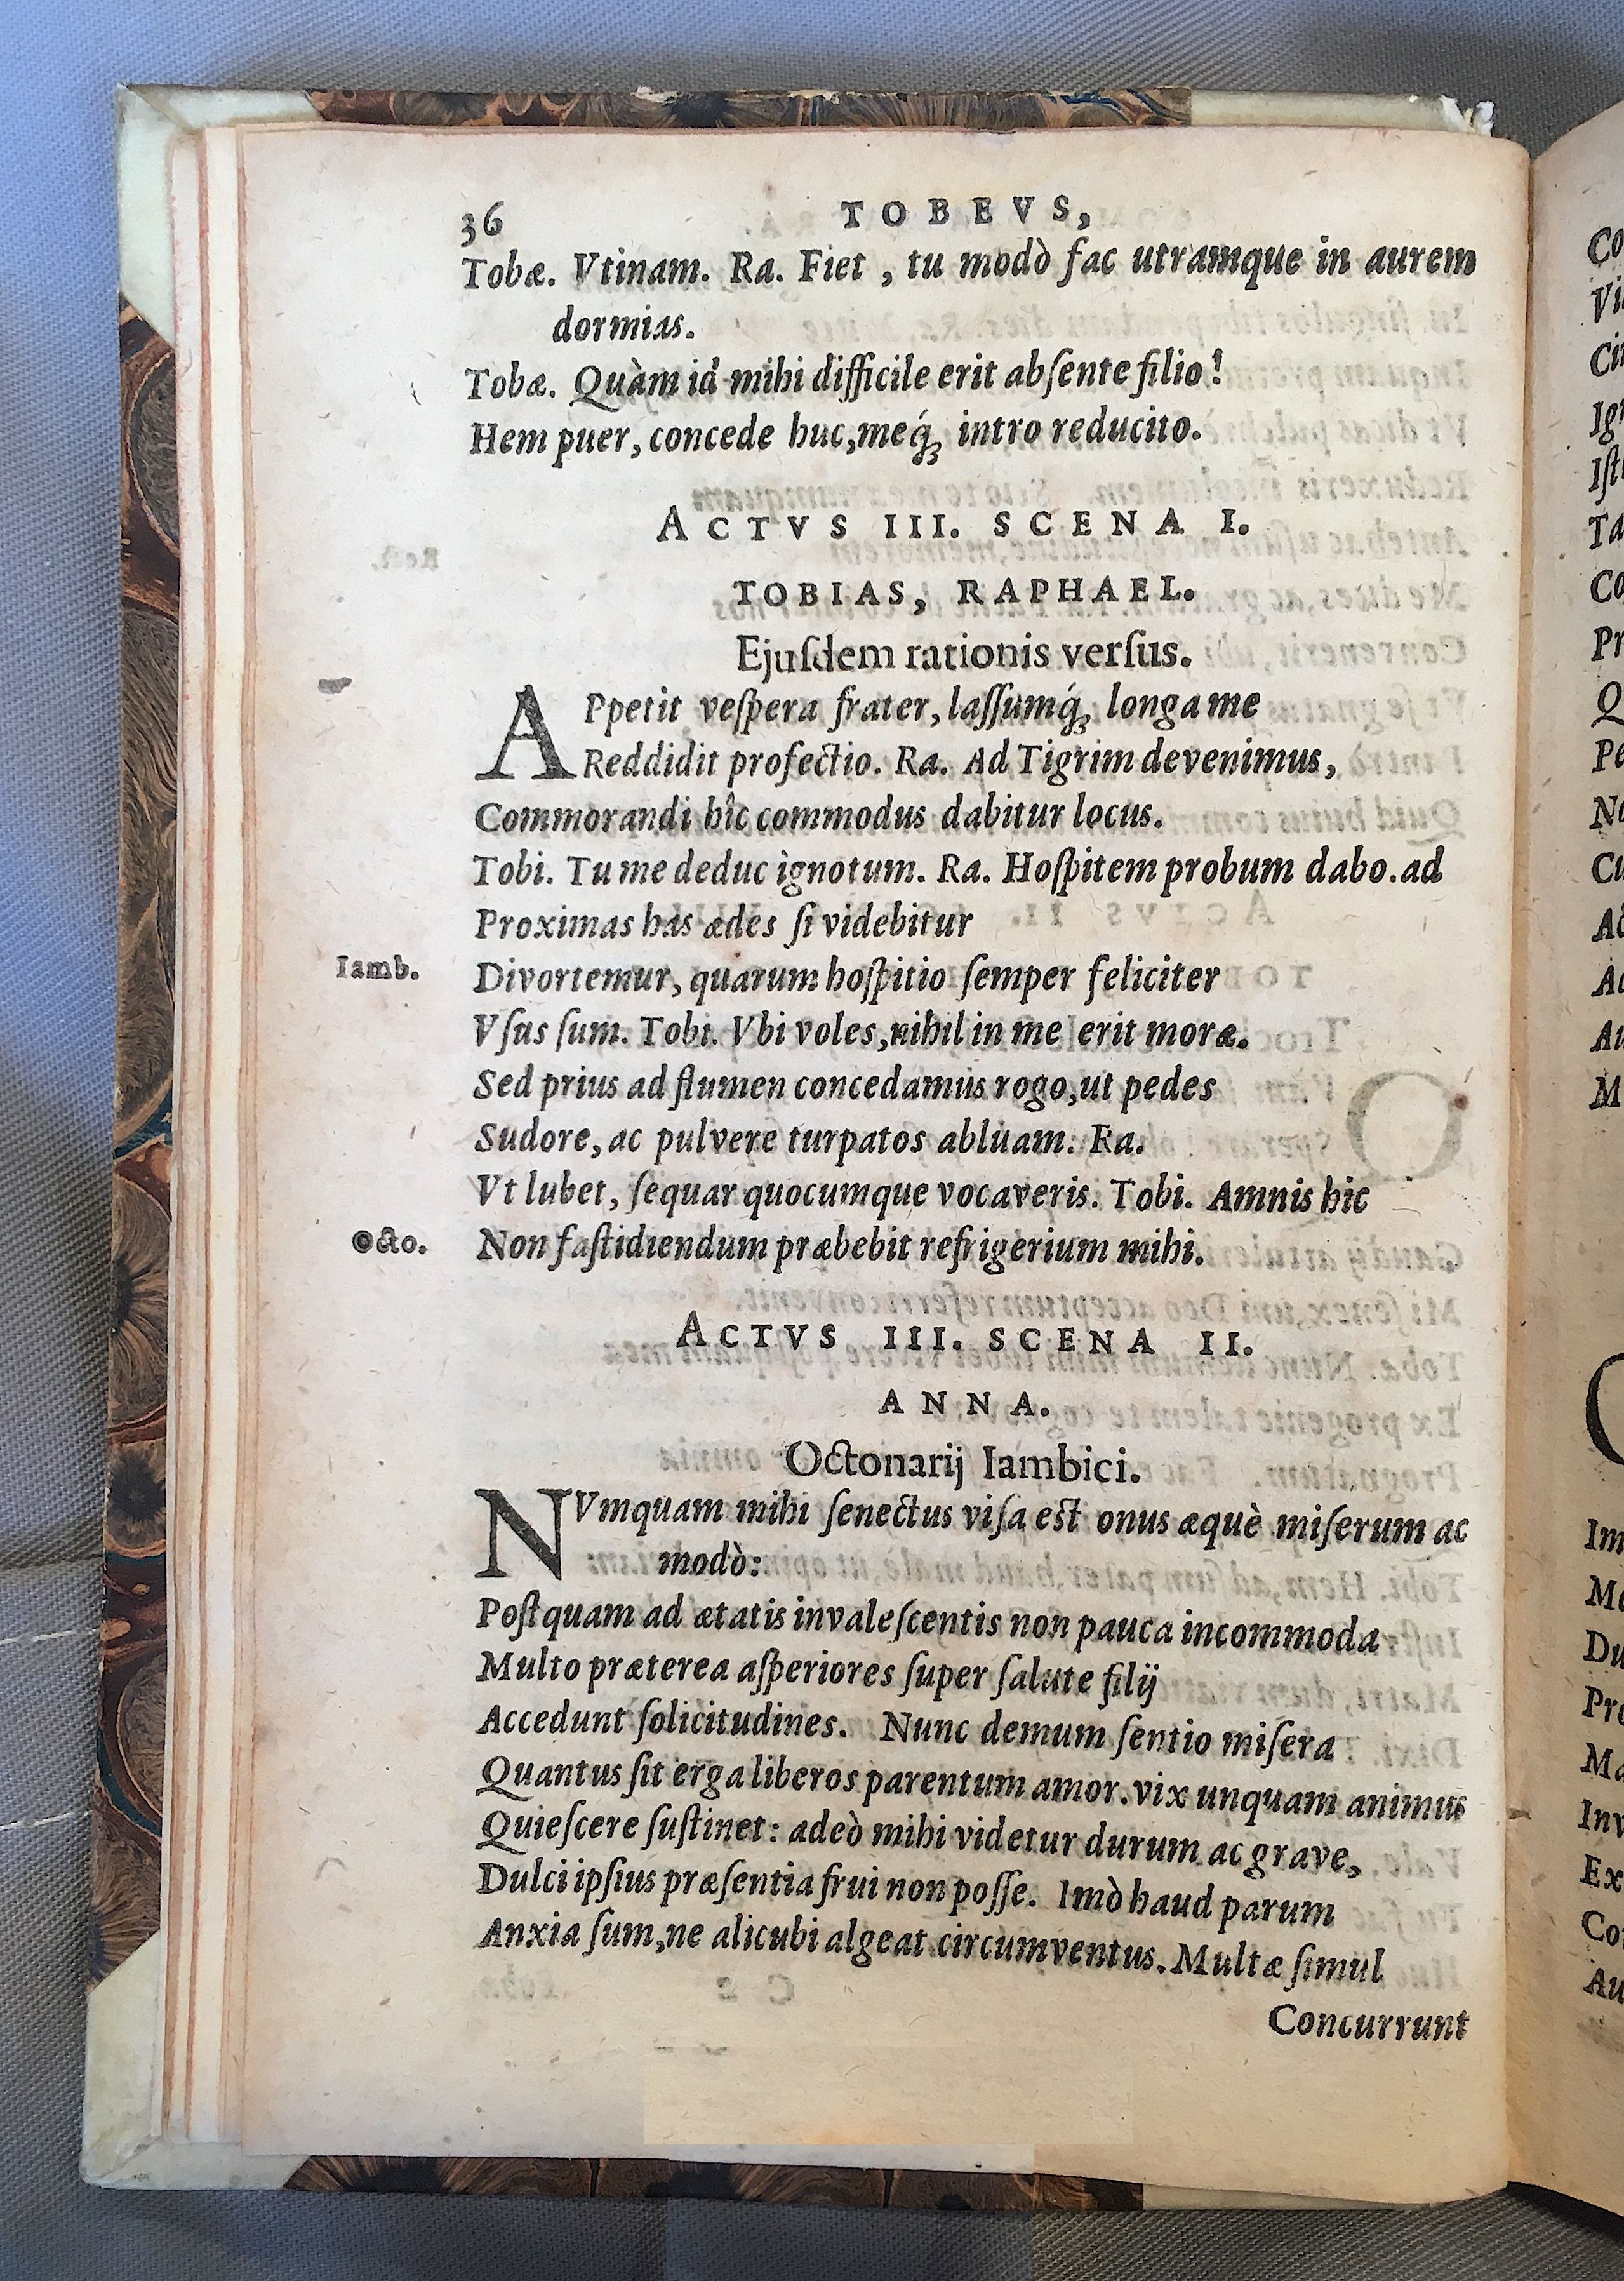 36 TOBEVS,
Tobæ. Vtinam. Ra. Fiet , tu modò fac utramque in aurem
dormias.
Tobæ. Quàm id mihi difficile erit absente filio!
Hem puer, concede huc, meq́; intro reducito.
ACTVS III. SCENA I.
TOBIAS, RAPHAEL.
Ejuſdem rationis verſus.
APpetit veſpera frater, laſſumq́; longa me
Reddidit profectio. Ra. Ad Tigrim devenimus,
Commorandi hîc commodus dabitur locus.
Tobi. Tu me deduc ignotum. Ra. Hoſpitem probum dabo. ad
Proximas has ædes ſi videbitur
Iamb. Divortemur, quarum hoſpitio ſemper feliciter
Vſus ſum. Tobi. Vbi voles, nihil in me erit moræ.
Sed prius ad flumen concedamus rogo, ut pedes
Sudore, ac pulvere turpatos abluam. Ra.
Vt lubet, ſequar quocumque vocaveris. Tobi. Amnis hic
Octo. Non faſtidiendum præbebit refrigerium mihi.
ACTVS III. SCENA II.
ANNA.
Octonarij Iambici.
NVmquam mihi ſenectus viſa est onus æquè miſerum ac
modò:
Poſtquam ad ætatis invaleſcentis non pauca incommoda
Multo præterea aſperiores ſuper ſalute filij
Accedunt ſolicitudines. Nunc demum ſentio miſera
Quantus ſit erga liberos parentum amor. vix unquam animus
Quieſcere ſuſtinet: adeò mihi videtur durum ac grave,
Dulci ipſius præſentia frui non poſſe. Imò haud parum
Anxia ſum, ne alicubi algeat circumventus. Multæ ſimul
Concurrunt